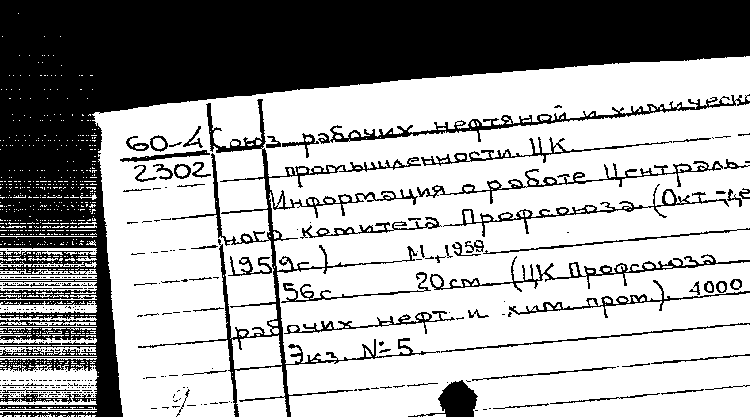 60-4 Союз рабочих нефтяной и химическо
2302 промышленности. ЦК.
Информация о работе Централь-
ного комитета Профсоюза. (Окт.-де
1959г.). М., 1959.
56с. 20см. (ЦК Профсоюза
рабочих нефт. и хим. пром.). 4000
Экз. №5.
9